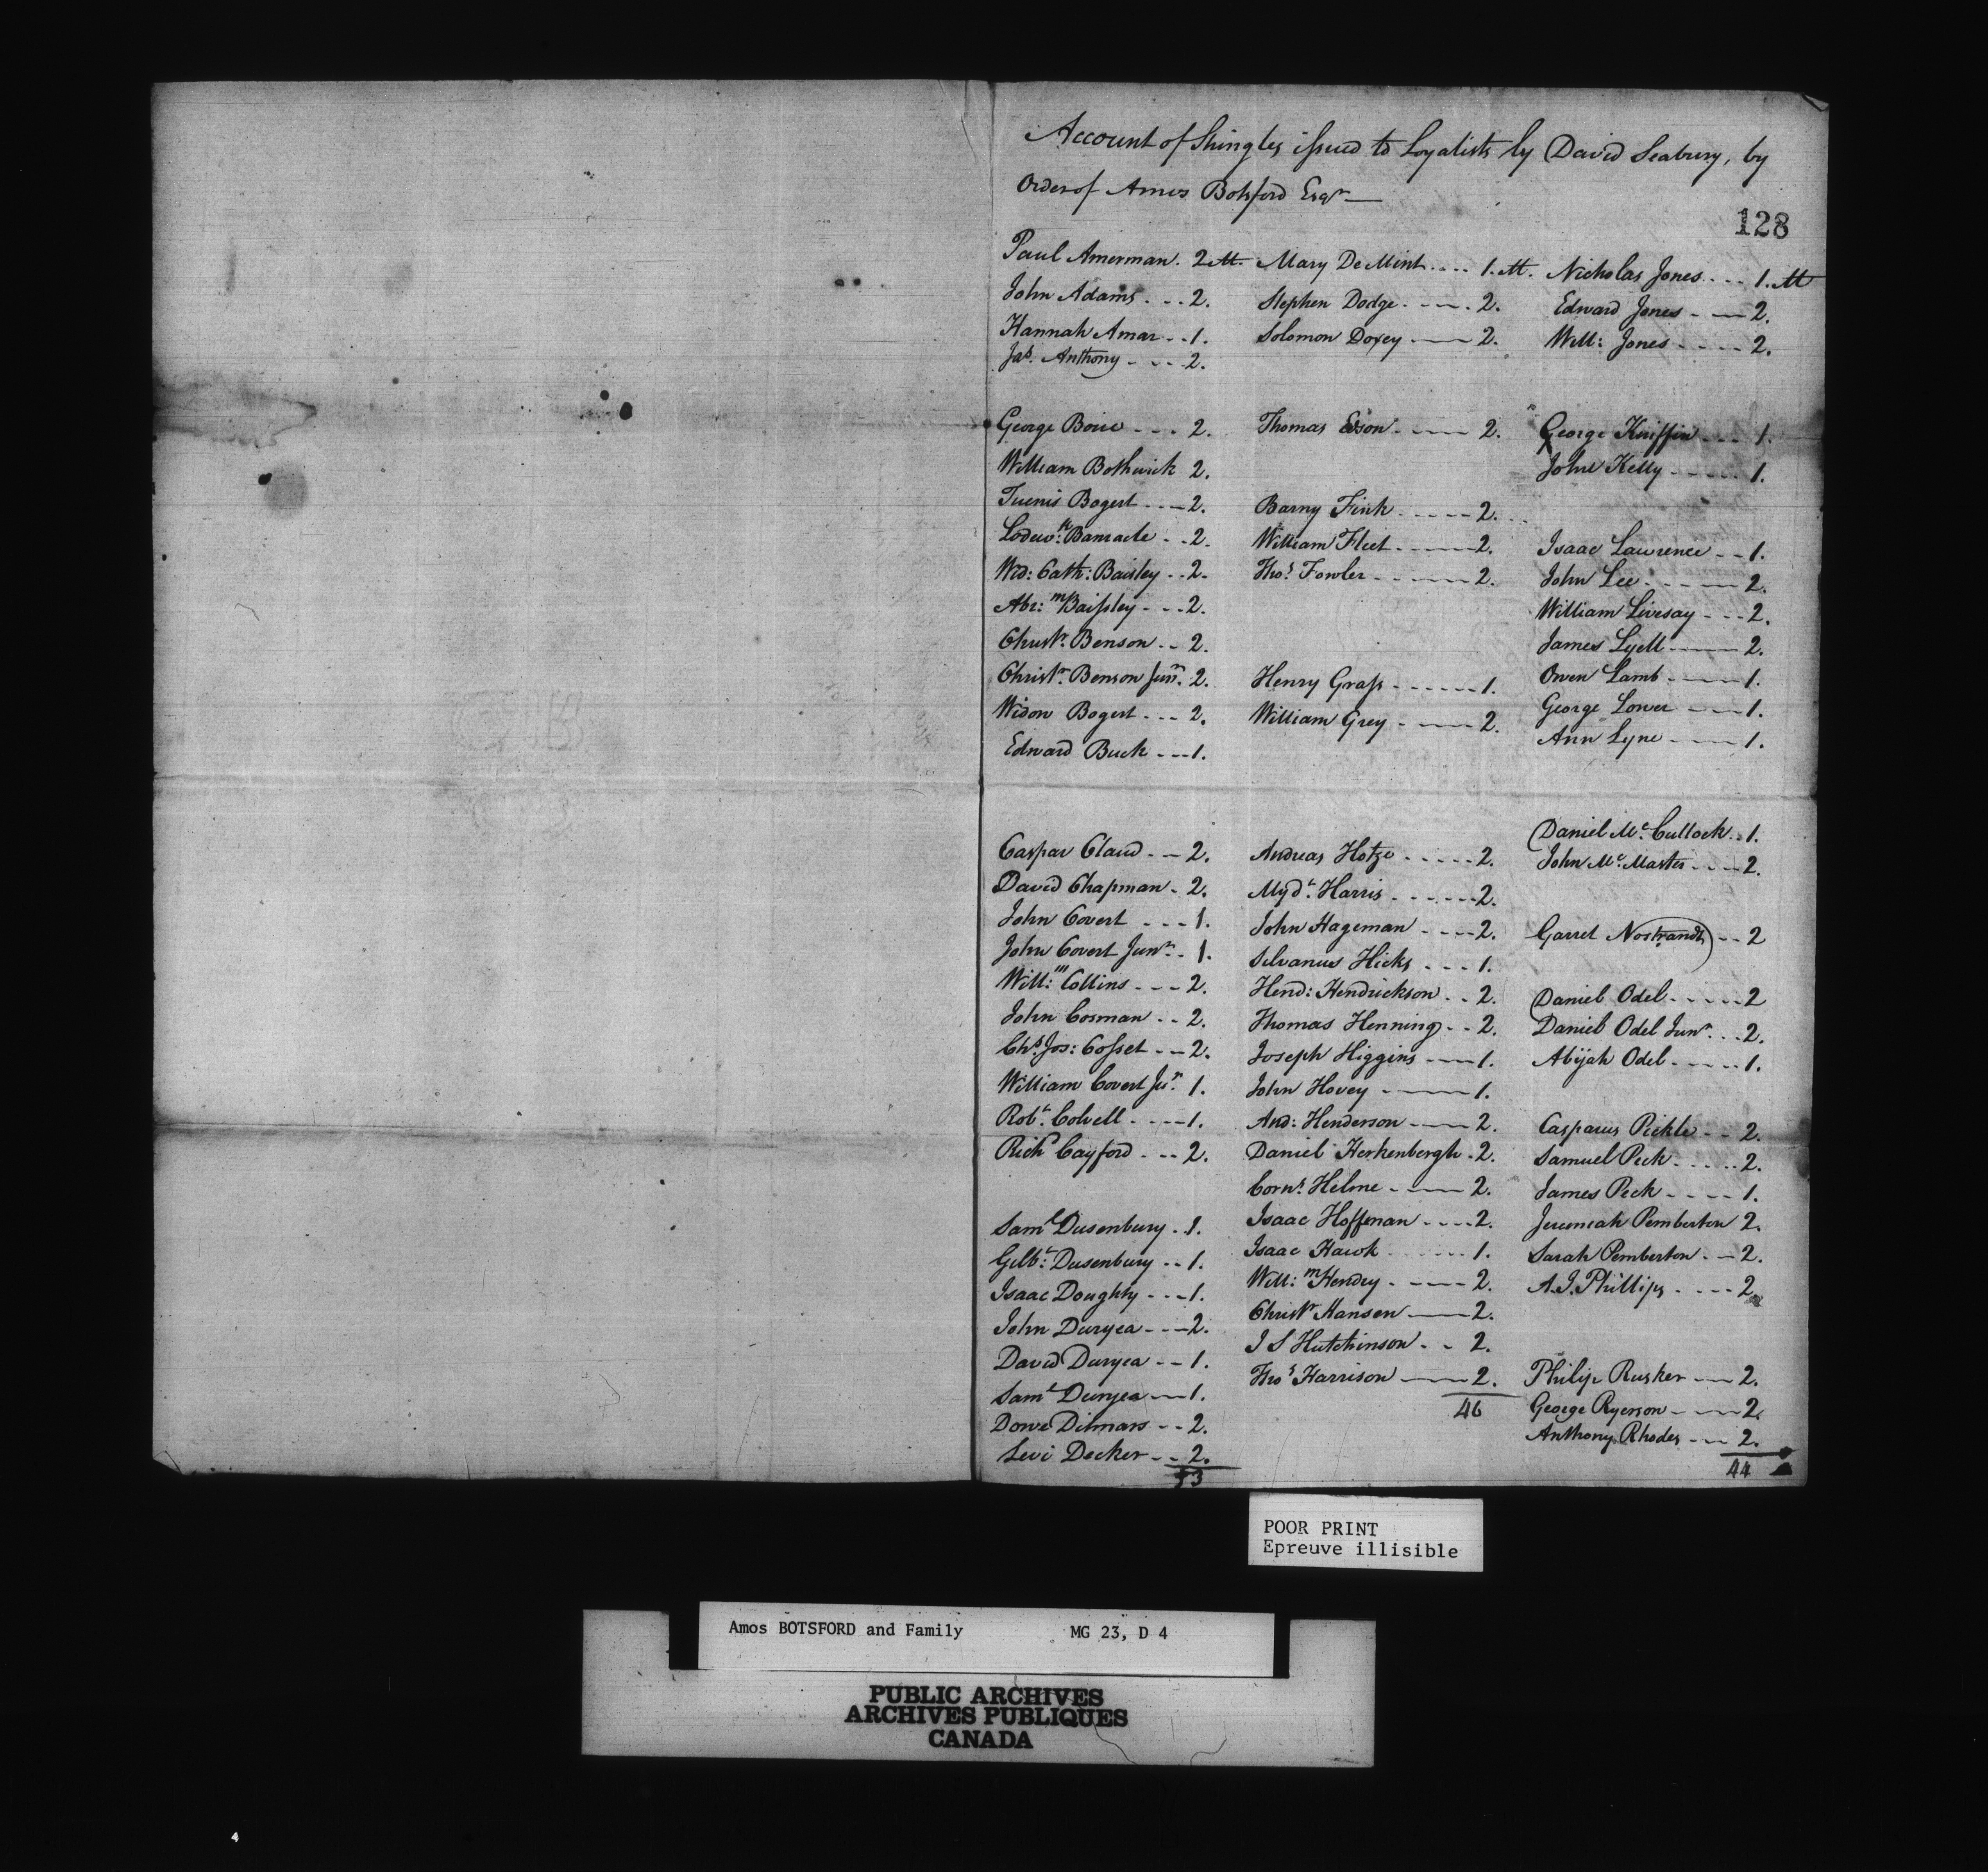 Account of Shingles issued to Loyalists by David Seabury, by
Order of Amos Botsford Esqr
128
Paul Amerman. 2 M.
John Adams - - - 2.
Hannah Amar - - 1.
Jas. Anthony - - - 2.
George Boice - - - 2.
William Bothwick 2.
Tuenis Bogert - - - 2.
Lodewk. Banracle - - 2.
Wid: Cath: Baisley - - 2.
Abr:m Baissley - - - 2.
Christr. Benson - - 2.
Christr. Benson Junr. 2.
Widow Bogert - - - 2.
Edward Buck - - - 1.
Caspar Claud - - 2.
David Chapman - 2.
John Covert - - - 1.
John Covert Junr - 1.
Will:m Collins - - - 2.
John Cosman - - 2.
Chs. Jos: Cosset - - 2.
William Covert Jur. 1.
Robt. Colvell - - - - 1.
Richd Cayford - - - 2.
Saml Dusenbury - 1.
Gilbt: Dusenbury - - 1.
Isaac Doughty - - - 1.
John Duryea - - - 2.
David Duryea - - 1.
Saml Duryea - - 1.
Dowe Ditmars - - 2.
Levi Decker - - 2.
53
Mary De Mint - - - - 1. M.
Stephen Dodge - - - - 2.
Solomon Doxey - - - 2.
Thomas Edson - - - - 2.
Barny Fink - - - - - 2.
William Fleet - - - - 2.
Thos. Fowler - - - - 2.
Henry Grass - - - - - - 1.
William Grey - - - - 2.
Andreas Hotze - - - - - 2.
Mydt. Harris - - - - - - 2.
John Hageman - - - - 2.
Silvanus Hicks - - - 1.
Hend: Hendrickson - - 2.
Thomas Henning - - 2.
Joseph Higgins - - - 1.
John Hovey - - - - 1.
And: Henderson - - - 2.
Daniel Herkenbergh - 2.
Corns. Helme - - - - 2.
Isaac Hoffman - - - - 2.
Isaac Hawk - - - - - - 1.
Will:m Hendry - - - - 2.
Christr Hansen - - - 2.
I S Hutchinson - - 2.
Thos Harrison - - - 2.
46
Nicholas Jones - - - - 1. M
Edward Jones - - - 2.
Will: Jones - - - - - 2.
George Kniffin - - - 1.
John Kelly - - - - - 1.
Isaac Lawrence - - 1.
John Lee - - - - - 2.
William Livesay - - - 2.
James Lyell - - - - 2.
Owen Lamb - - - - 1.
George Lower - - - 1.
Ann Lyne - - - - 1.
Daniel Mc. Cullock - 1.
John Mc. Master - - - 2.
Garret Nostrandt - - 2
Daniel Odel - - - - - 2
Daniel Odel Junr - - - 2.
Abijah Odel - - - - - 1.
Casparus Pickle - - 2.
Samuel Peck - - - - - 2.
James Peck - - - - 1.
Jeremiah Pemberton 2.
Sarah Pemberton - - 2.
A. I. Phillips - - - - 2.
Philip Rusker - - 2.
George Ryerson - - - 2.
Anthony Rhodes - - - 2.
44
POOR PRINT
Epreuve illisible
Amos BOTSFORD and Family MG 23, D 4
PUBLIC ARCHIVES
ARCHIVES PUBLIQUES
CANADA
4